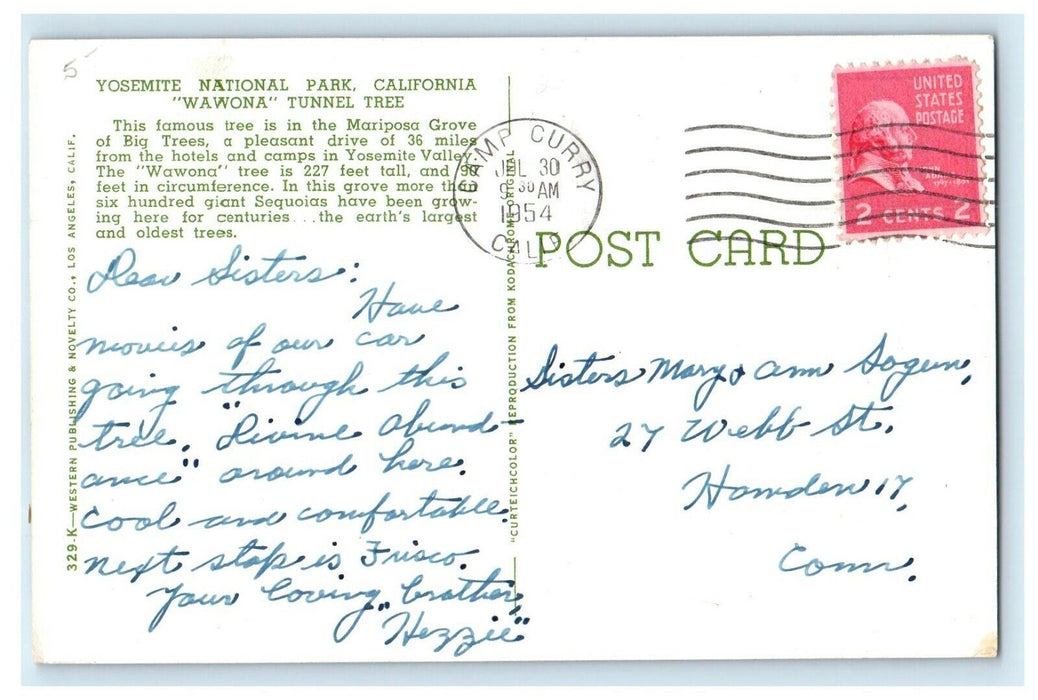 5
YOSEMITE NATIONAL PARK, CALIFORNIA
"WAWONA" TUNNEL TREE
This famous tree is in the Mariposa Grove
of Big Trees, a pleasant drive of 36 miles
from the hotels and camps in Yosemite Valley.
The "Wawona" tree is 227 feet tall, and 90
feet in circumference. In this grove more than
six hundred giant Sequoias have been grow-
ing here for centuries...the earth's largest
and oldest trees.
329-K—WESTERN PUBLISHING & NOVELTY CO., LOS ANGELES, CALIF.
Dear Sisters:
Have
movies of our car
going through this
tree. "Divine abund-
ance" around here.
Cool and comfortable.
next stop is Frisco.
Your loving brother,
"Hezzie"
"CURTEICHCOLOR" REPRODUCTION FROM KODACHROME ORIGINAL
CAMP CURRY
JUL 30
9 30 AM
1954
CALIF
POST CARD
UNITED
STATES
POSTAGE
JOHN
ADAMS
2 CENTS 2
Sisters Mary & Ann
27 Webb St.
Hamden 17,
Conn.